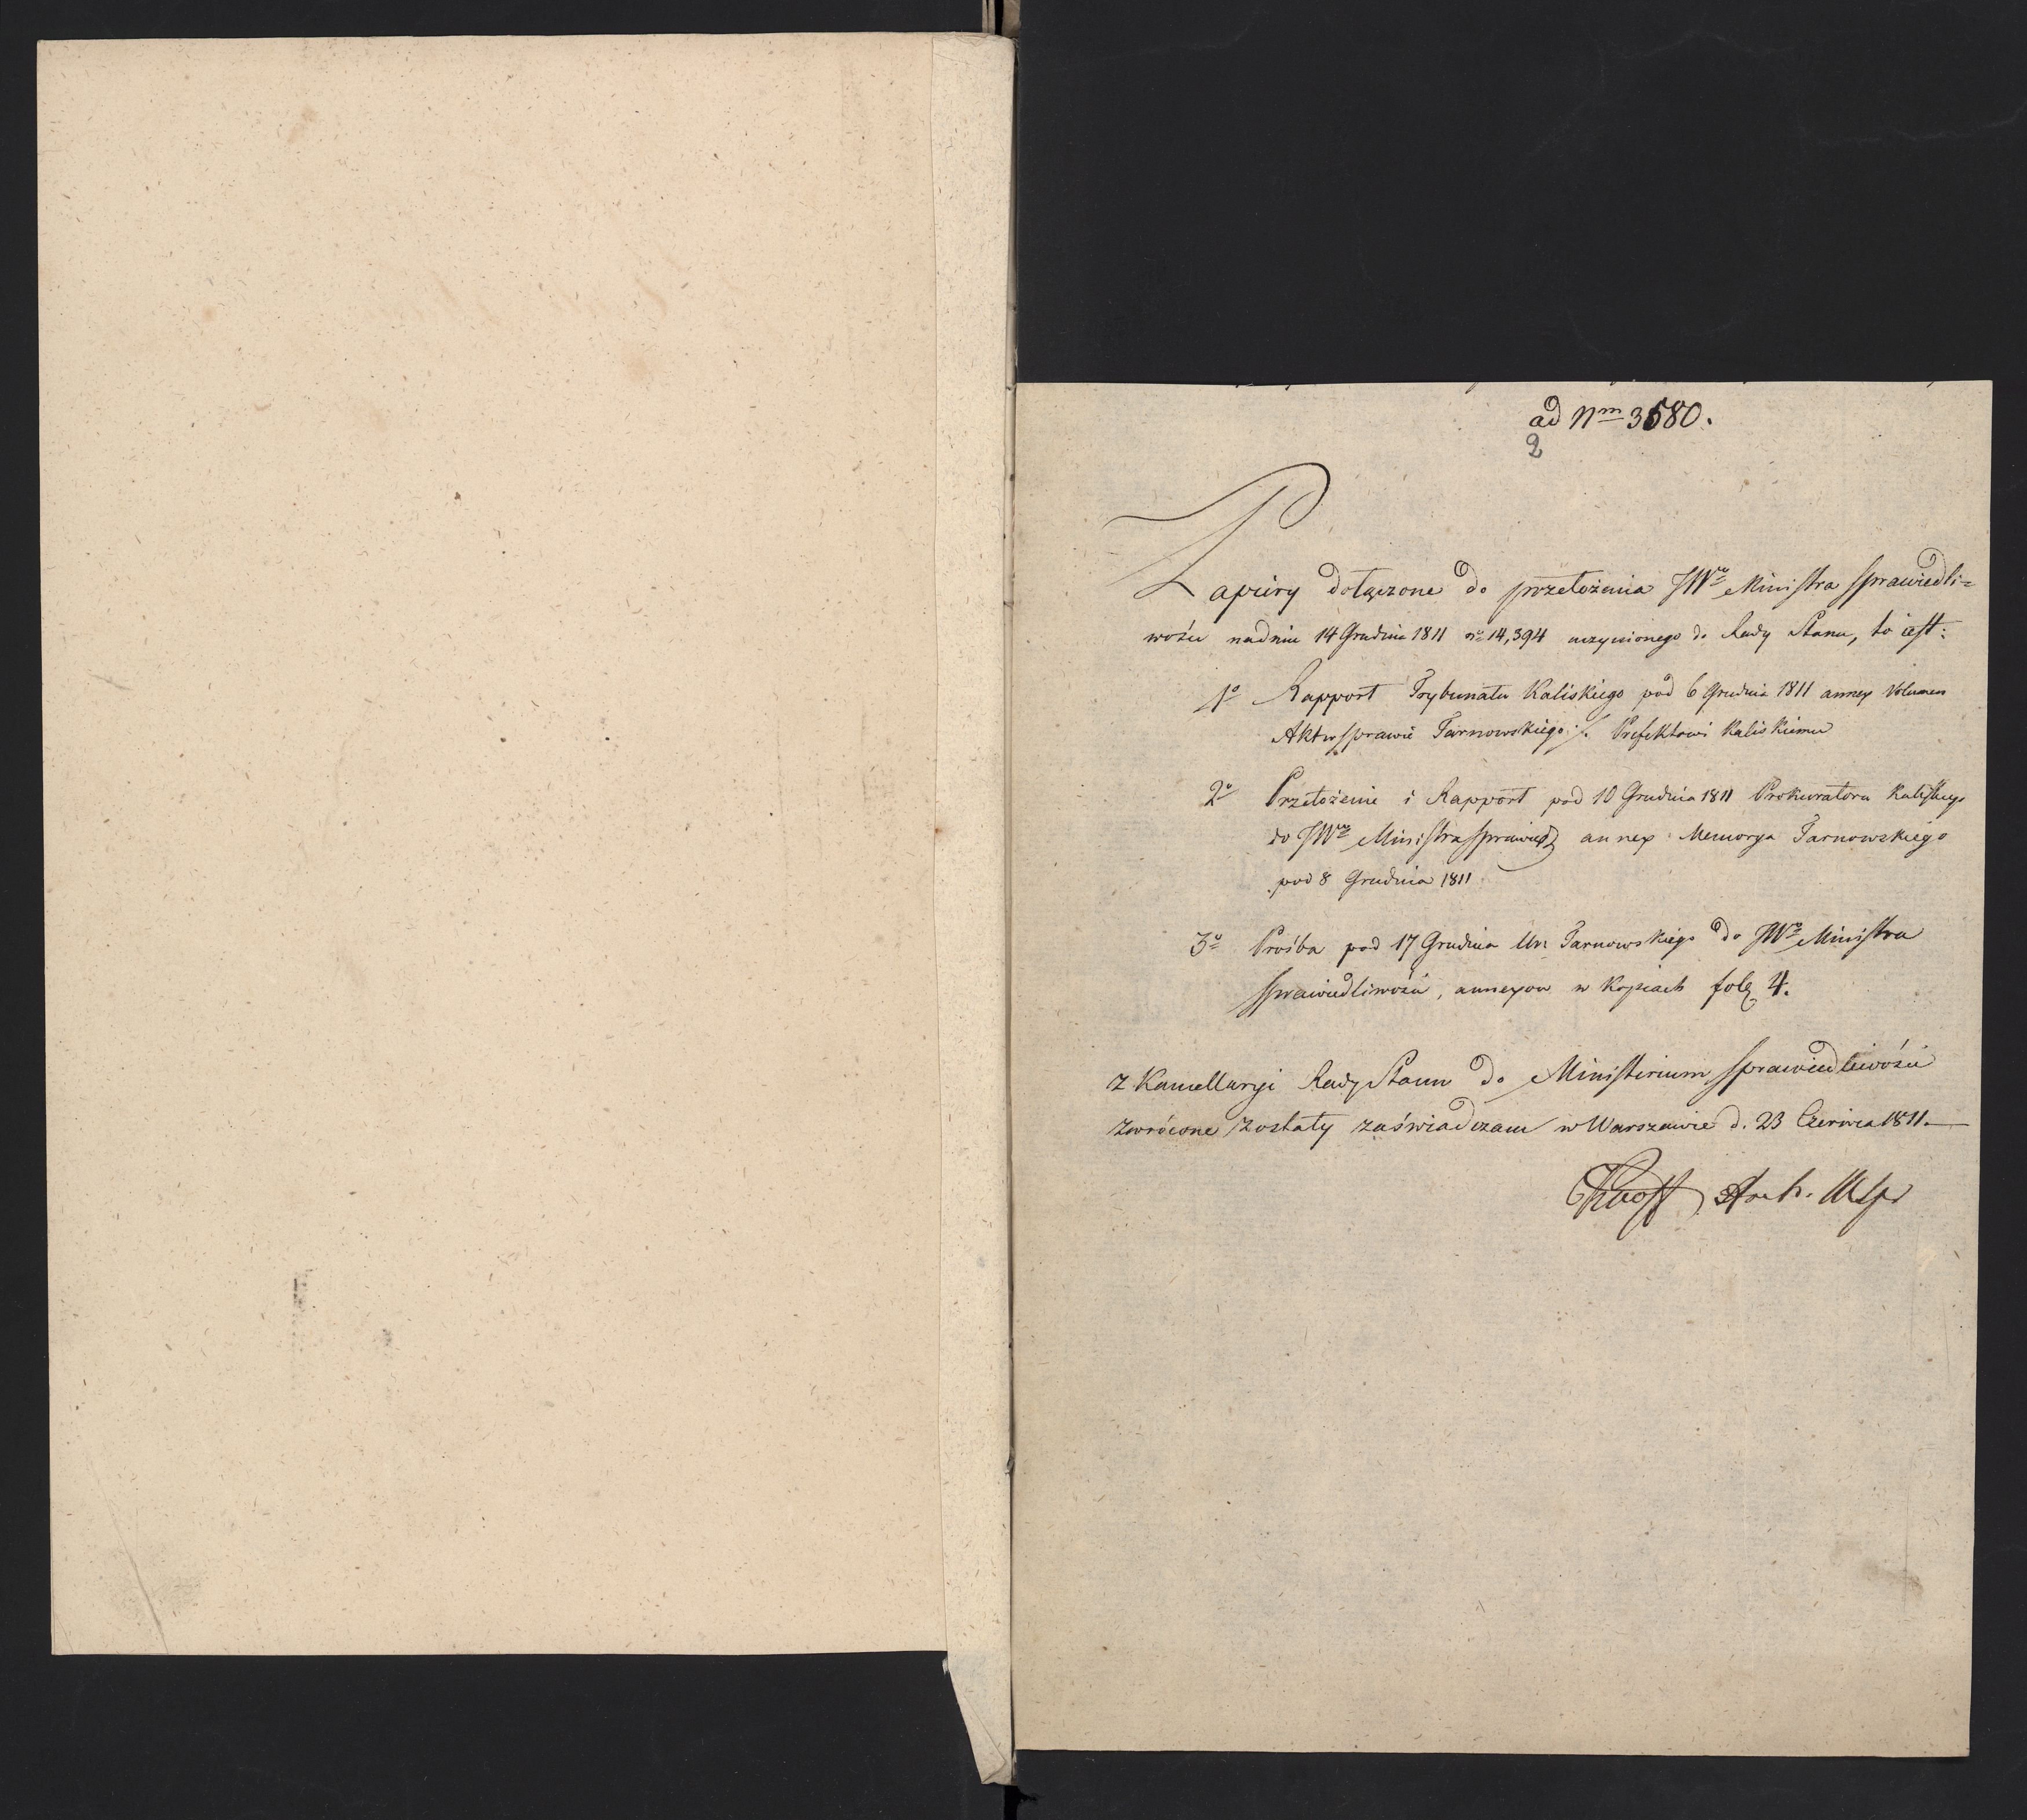 ad Nm 3580.
2
Papiery dołączone do przełożenia JWo Ministra Sprawiedli=
wości na dniu 14 Grudnia 1811 no 14,394 uczynionego do Rady Stanu, to iest:
1o Rapport Trybunału Kaliskiego pod 6 Grudnia 1811 annex Volumen
Aktw sprawie Tarnowskiego ./. Prefektowi Kaliskiemu
2o Przełożenie i Rapport pod 10 Grudnia 1811 Prokuratora Kaliskiego
do JWo Ministra Sprawied annex Memorya Tarnowskiego
pod 8 Grudnia 1811
3o Prośba pod 17 Grudnia Ur. Tarnowskiego do JWo Ministra
Sprawiedliwości, annexow w Kopiach 4.
z Kancellaryi Rady Stanu do Ministerium Sprawiedliwości
zwrócone zostały zaświadczam w Warszawie d. 23 Czerwca 1811.
Arch.